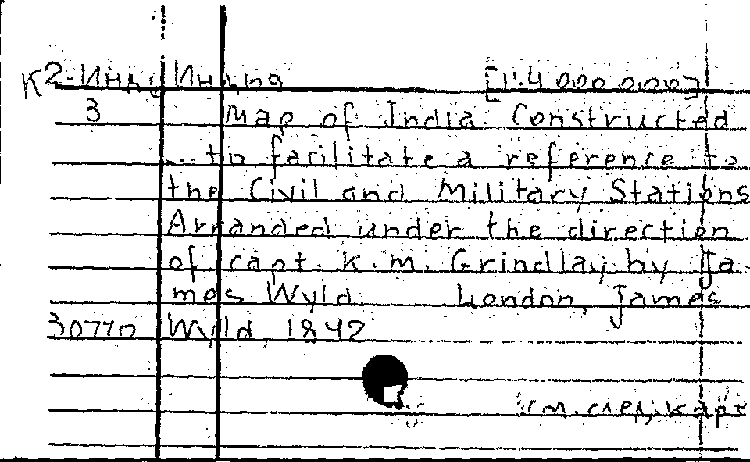 К2-Инд Индия [1:4 000 000]
3 Map of India Constructed
... to facilitate a reference to
the Civil and Military Stations
Arranded under the direction
of capt. K. M. Grindlay by Ja-
mes Wyld London, James
30770 Wyld, 1842
см. след. карт